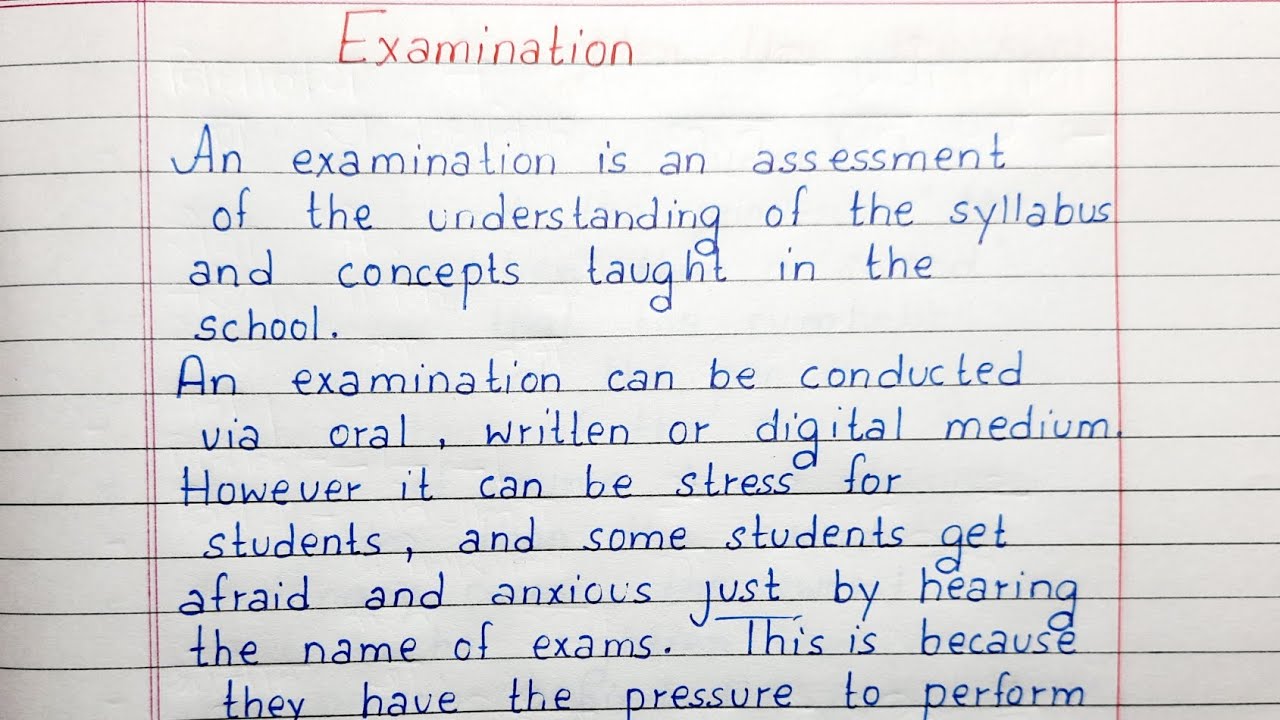 Examination
An examination is an assessment
of the understanding of the syllabus
and concepts taught in the
school.
An examination can be conducted
via oral, written or digital medium.
However it can be stress for
students, and some students get
afraid and anxious just by hearing
the name of exams. This is because
they have the pressure to perform